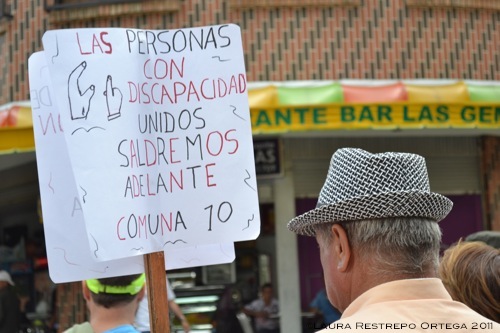 LAS PERSONAS
CON
DISCAPACIDAD
UNIDOS
SALDREMOS
ADELANTE
COMUNA 10
ANTE BAR LAS GEM
LAURA RESTREPO ORTEGA 2011